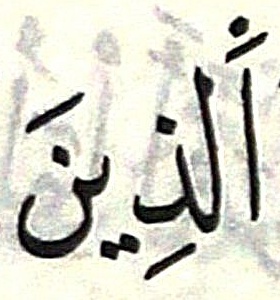 اَلَّذِينَ